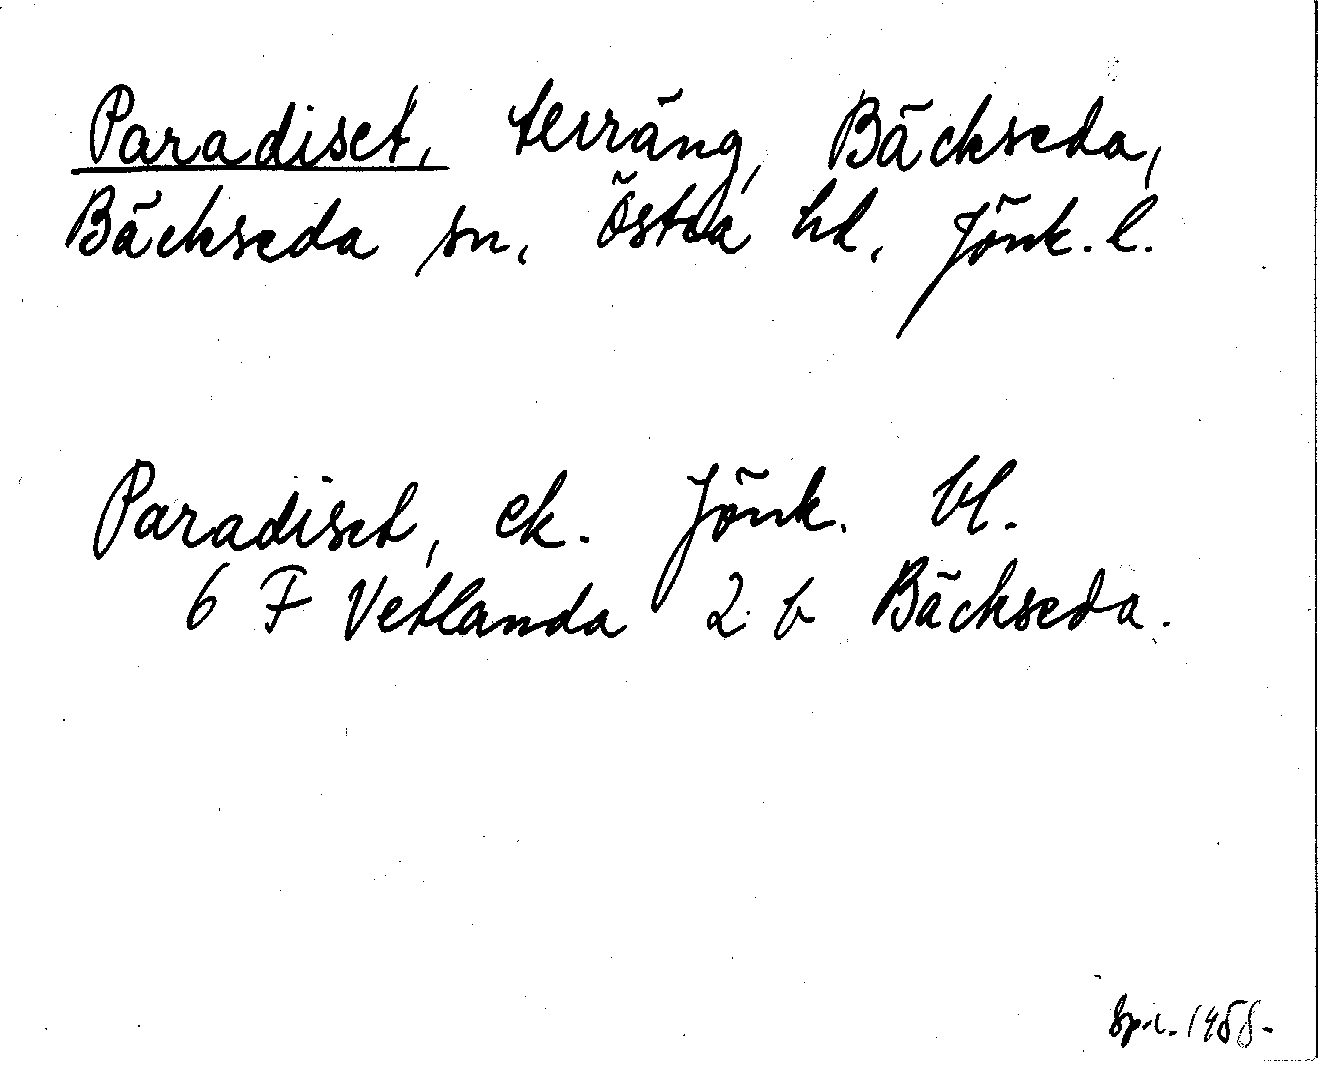 Paradiset, terräng, Bäckseda,
Bäckseda sn, Östra hd, Jönk. l.
Paradiset, ek. Jönk. bl.
6 F Vetlanda 2 b Bäckseda.